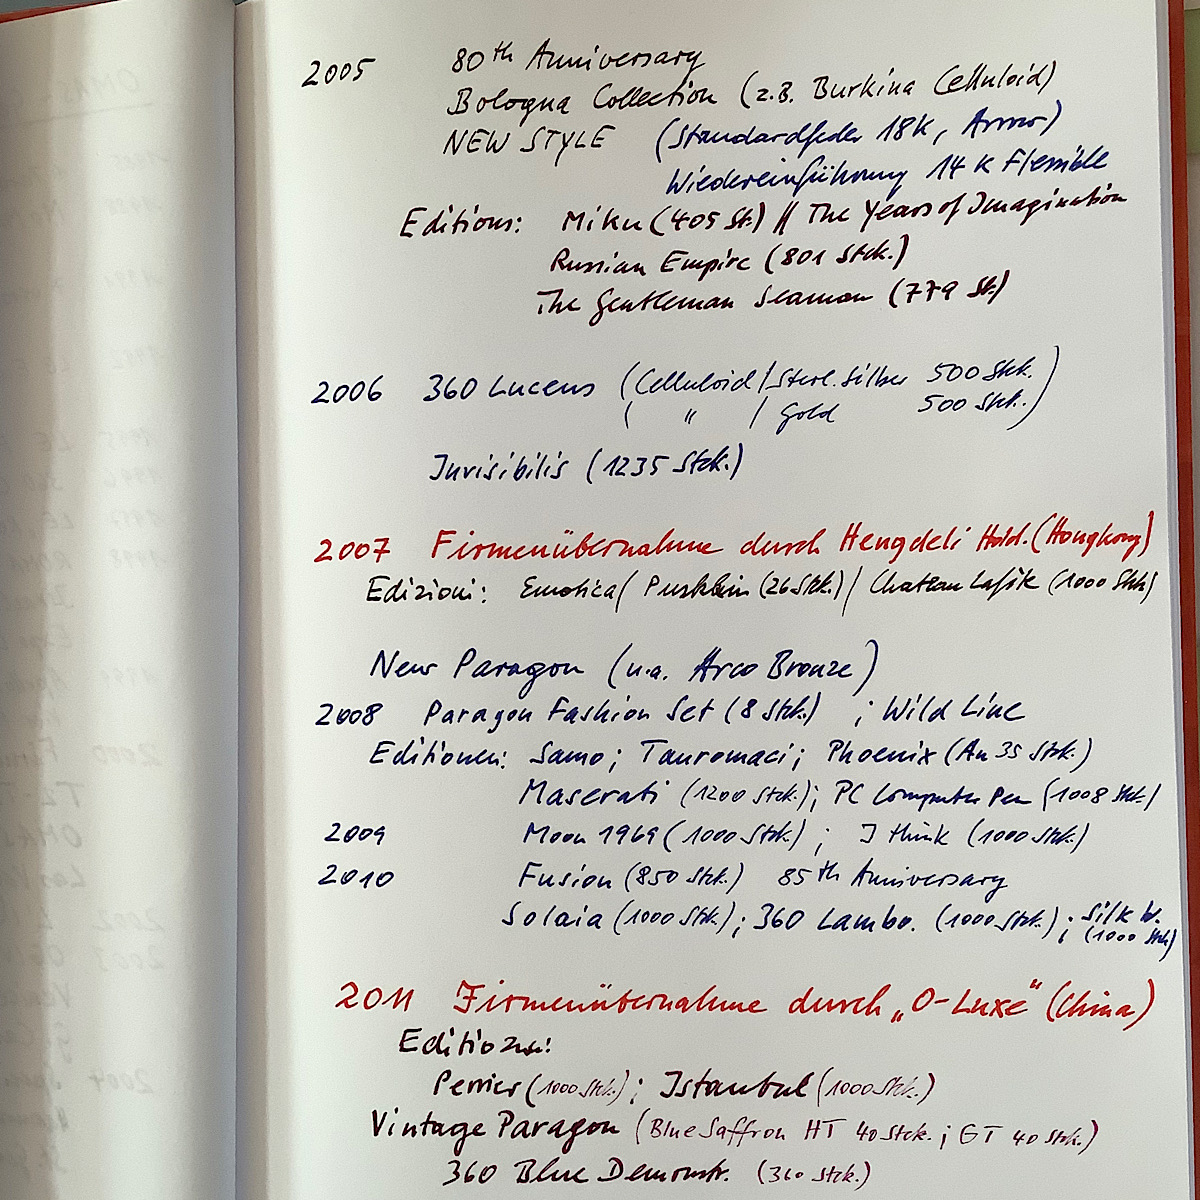 2005 80th Anniversary
Bologna Collection (z.B. Burkina Celluloid)
NEW STYLE (Standardfeder 18K, Arrow)
Wiedereinführung 14 K Flexible
Editions: Miku (405 St.) // The Years of Imagination
Russian Empire (801 Stck.)
The Gentleman Seaman (779 St.)
2006 360 Lucens (Celluloid / Sterl. Silber 500 Stck.)
( " / Gold 500 Stck.)
Invisibilis (1235 Stck.)
2007 Firmenübernahme durch Hengdeli Hold. (Hongkong)
Edizioni: Emotica / (26 Stck.) / Chateau Lafite (1000 Stck)
New Paragon (u.a. Arco Bronze)
2008 Paragon Fashion Set (8 Stck.) ; Wild Line
Editionen: Samo; Tauromaci; Phoenix (Au 35 Stck.)
Maserati (1200 Stck.); PC Computer Pen (1008 Stck.)
2009 Moon 1969 (1000 Stck.) ; I think (1000 Stck.)
2010 Fusion (850 Stck.) 85th Anniversary
Solaia (1000 Stck.); 360 Lambo. (1000 Stck.) ; Silk W.
(1000 Stck)
2011 Firmenübernahme durch „O-Luxe“ (China)
Perrier (1000 Stck.) ; Istanbul (1000 Stck.)
Vintage Paragon (Blue Saffron HT 40 Stck. ; GT 40 Stck.)
360 Blue Demonstr. (360 Stck.)